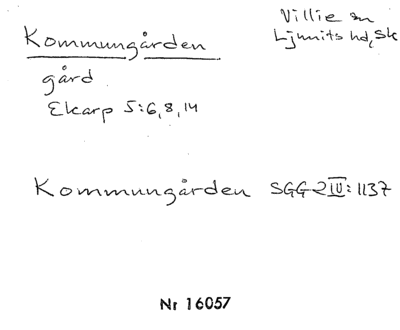 Kommungården
Villie sn
Ljunits hd, Sk
gård
Ekarp 5:6, 8, 14
Kommungården SGG 2 IV: 1137
Nr 16057